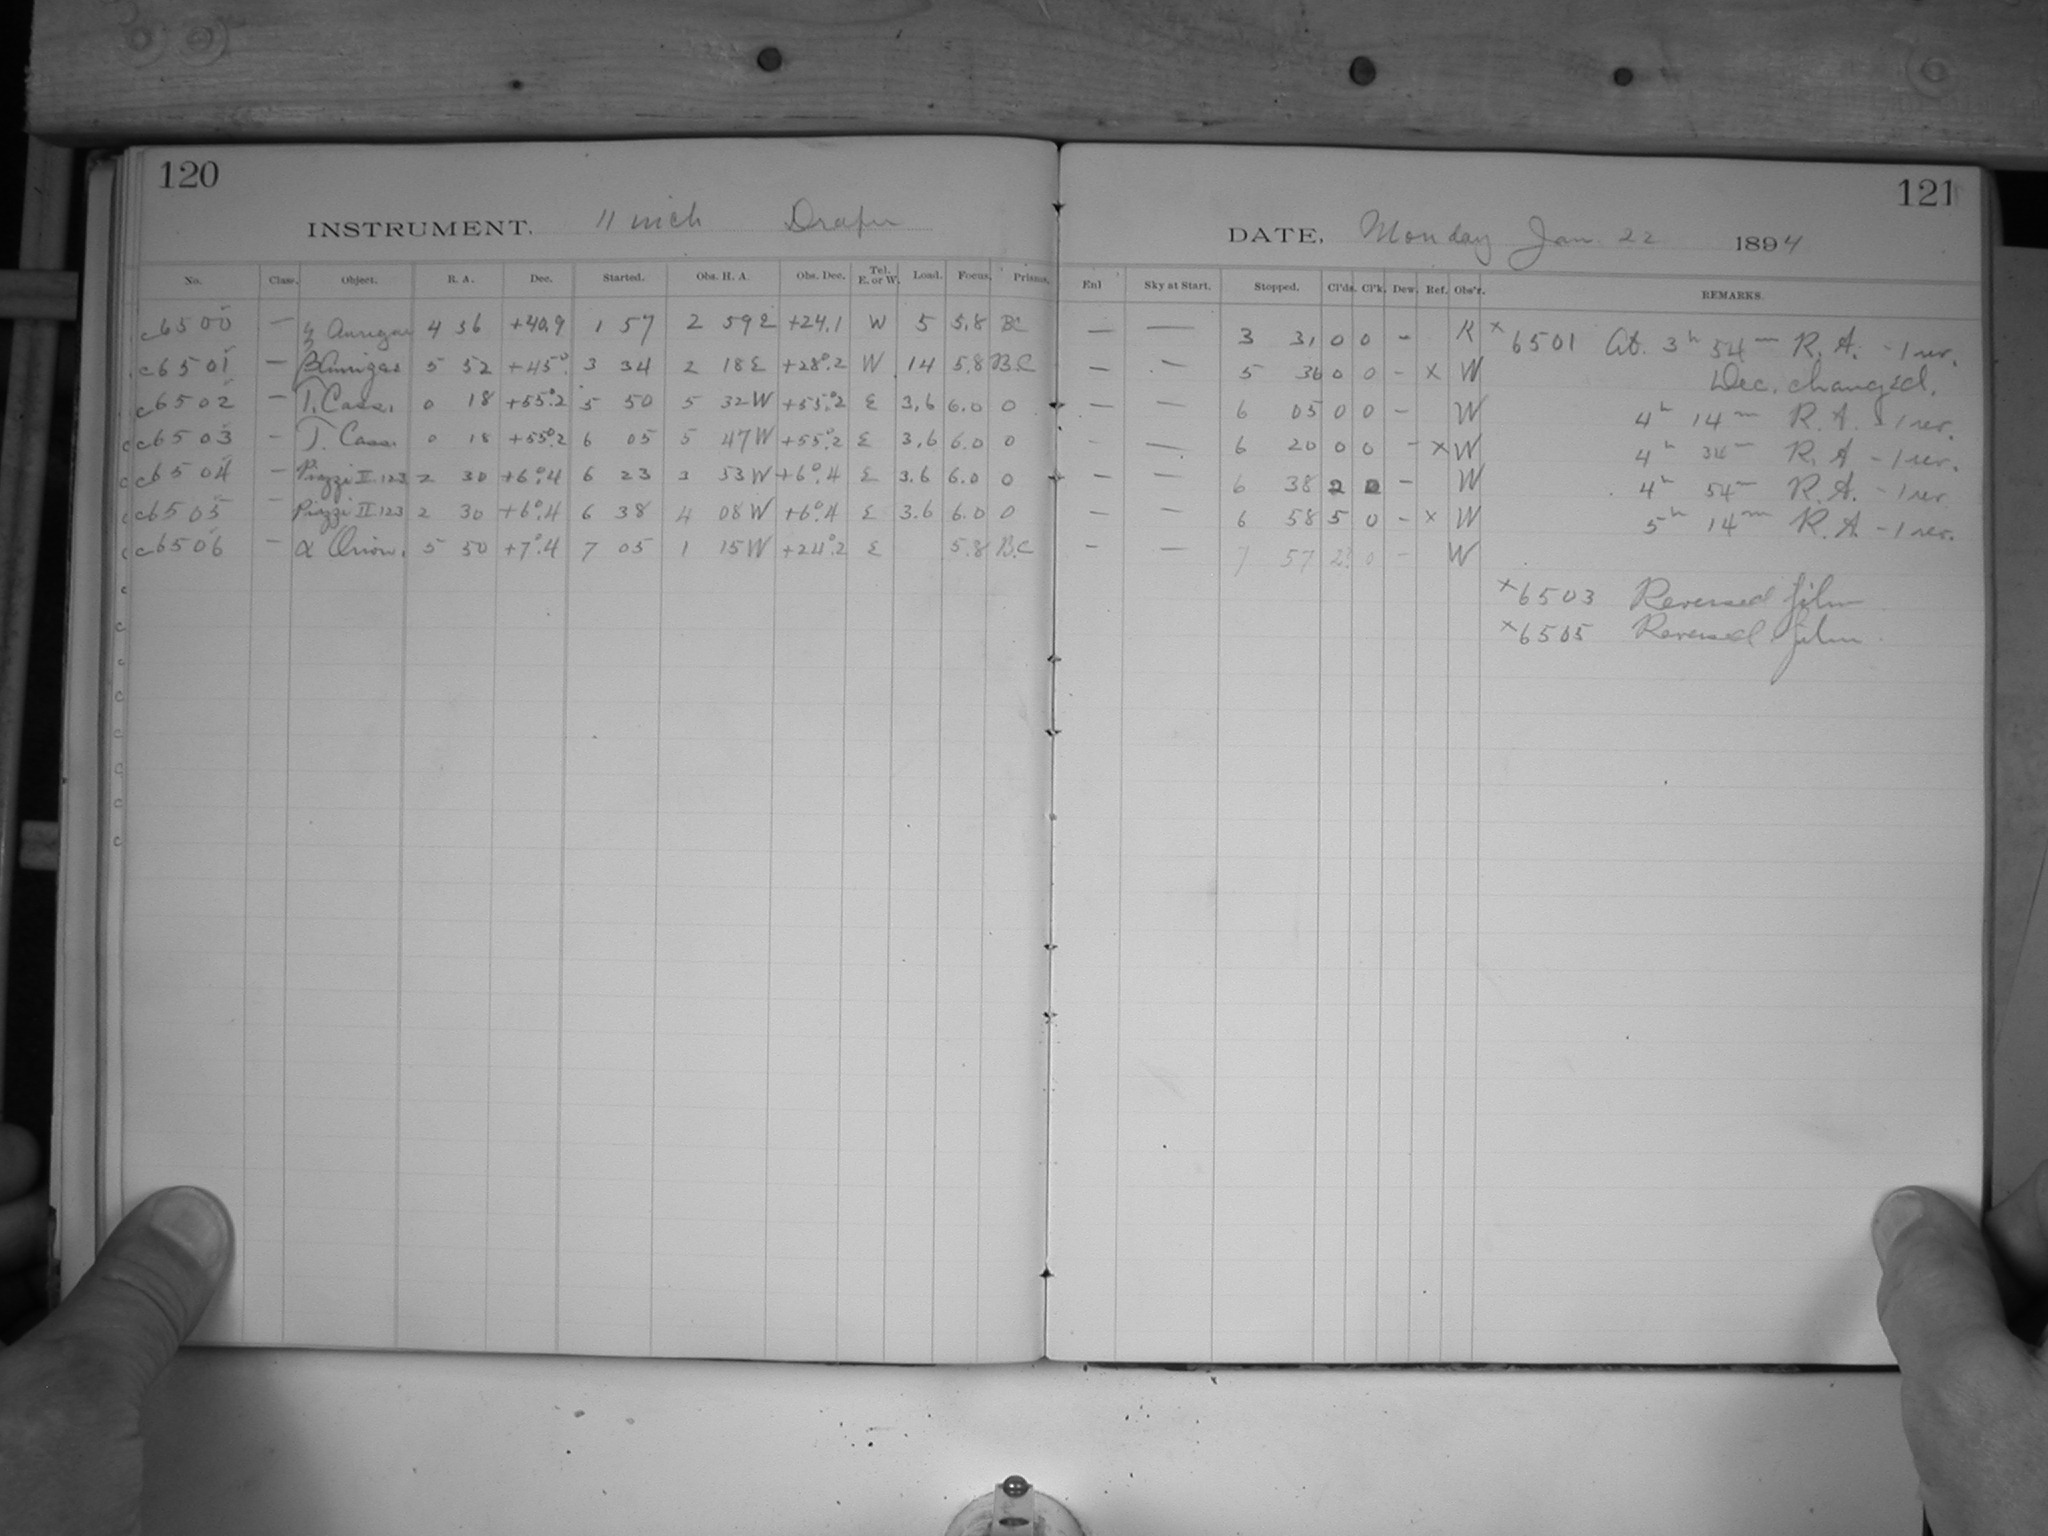 120
INSTRUMENT. 11 inch Draper
No. Class. Object. R. A. Dec. Started. Obs. H. A. Obs. Dec. Tel. E. or W. Load. Focus. Prisms.
c6500 — Aurigae 4 56 +40.9 1 57 2 59 E +24.1 W 5 5.8 BC
c6501 — β Aurigae 5 52 +45° 3 34 2 18 E +28°.2 W 14 5.8 B.C
c6502 — T. Cass. 0 18 +55°.2 5 50 5 32 W +55°.2 E 3.6 6.0 0
c6503 – T. Cass. 0 18 +55°.2 6 05 5 47 W +55°.2 E 3.6 6.0 0
c6504 — Piazzi II.123 2 30 +6°.4 6 23 3 53 W +6°.4 E 3.6 6.0 0
c6505 — Piazzi II.123 2 30 +6°.4 6 38 4 08 W +6°.4 E 3.6 6.0 0
c6506 — α Orion. 5 50 +7°.4 7 05 1 15 W +24°.2 E 5.8 B.C
121
DATE, Monday Jan. 22 1894
Enl Sky at Start. Stopped. Cl'ds. Cl'k. Dew. Ref. Obs'r. REMARKS.
— — 3 31 0 0 – R x 6501 At. 3h 54m R. A. – 1 rev.
— — 5 36 0 0 – x W Dec. changed.
— — 6 05 0 0 – W 4h 14m R. A. – 1 rev.
— 6 20 0 0 – x W 4h 34m R. A – 1 rev.
— — 6 38 2 0 – W 4h 54m R. A. – 1 rev
— — 6 58 5 0 – x W 5h 14m R. A. – 1 rev.
– — 7 57 2? 0 – W
x 6503 Reversed film
x 6505 Reversed film.